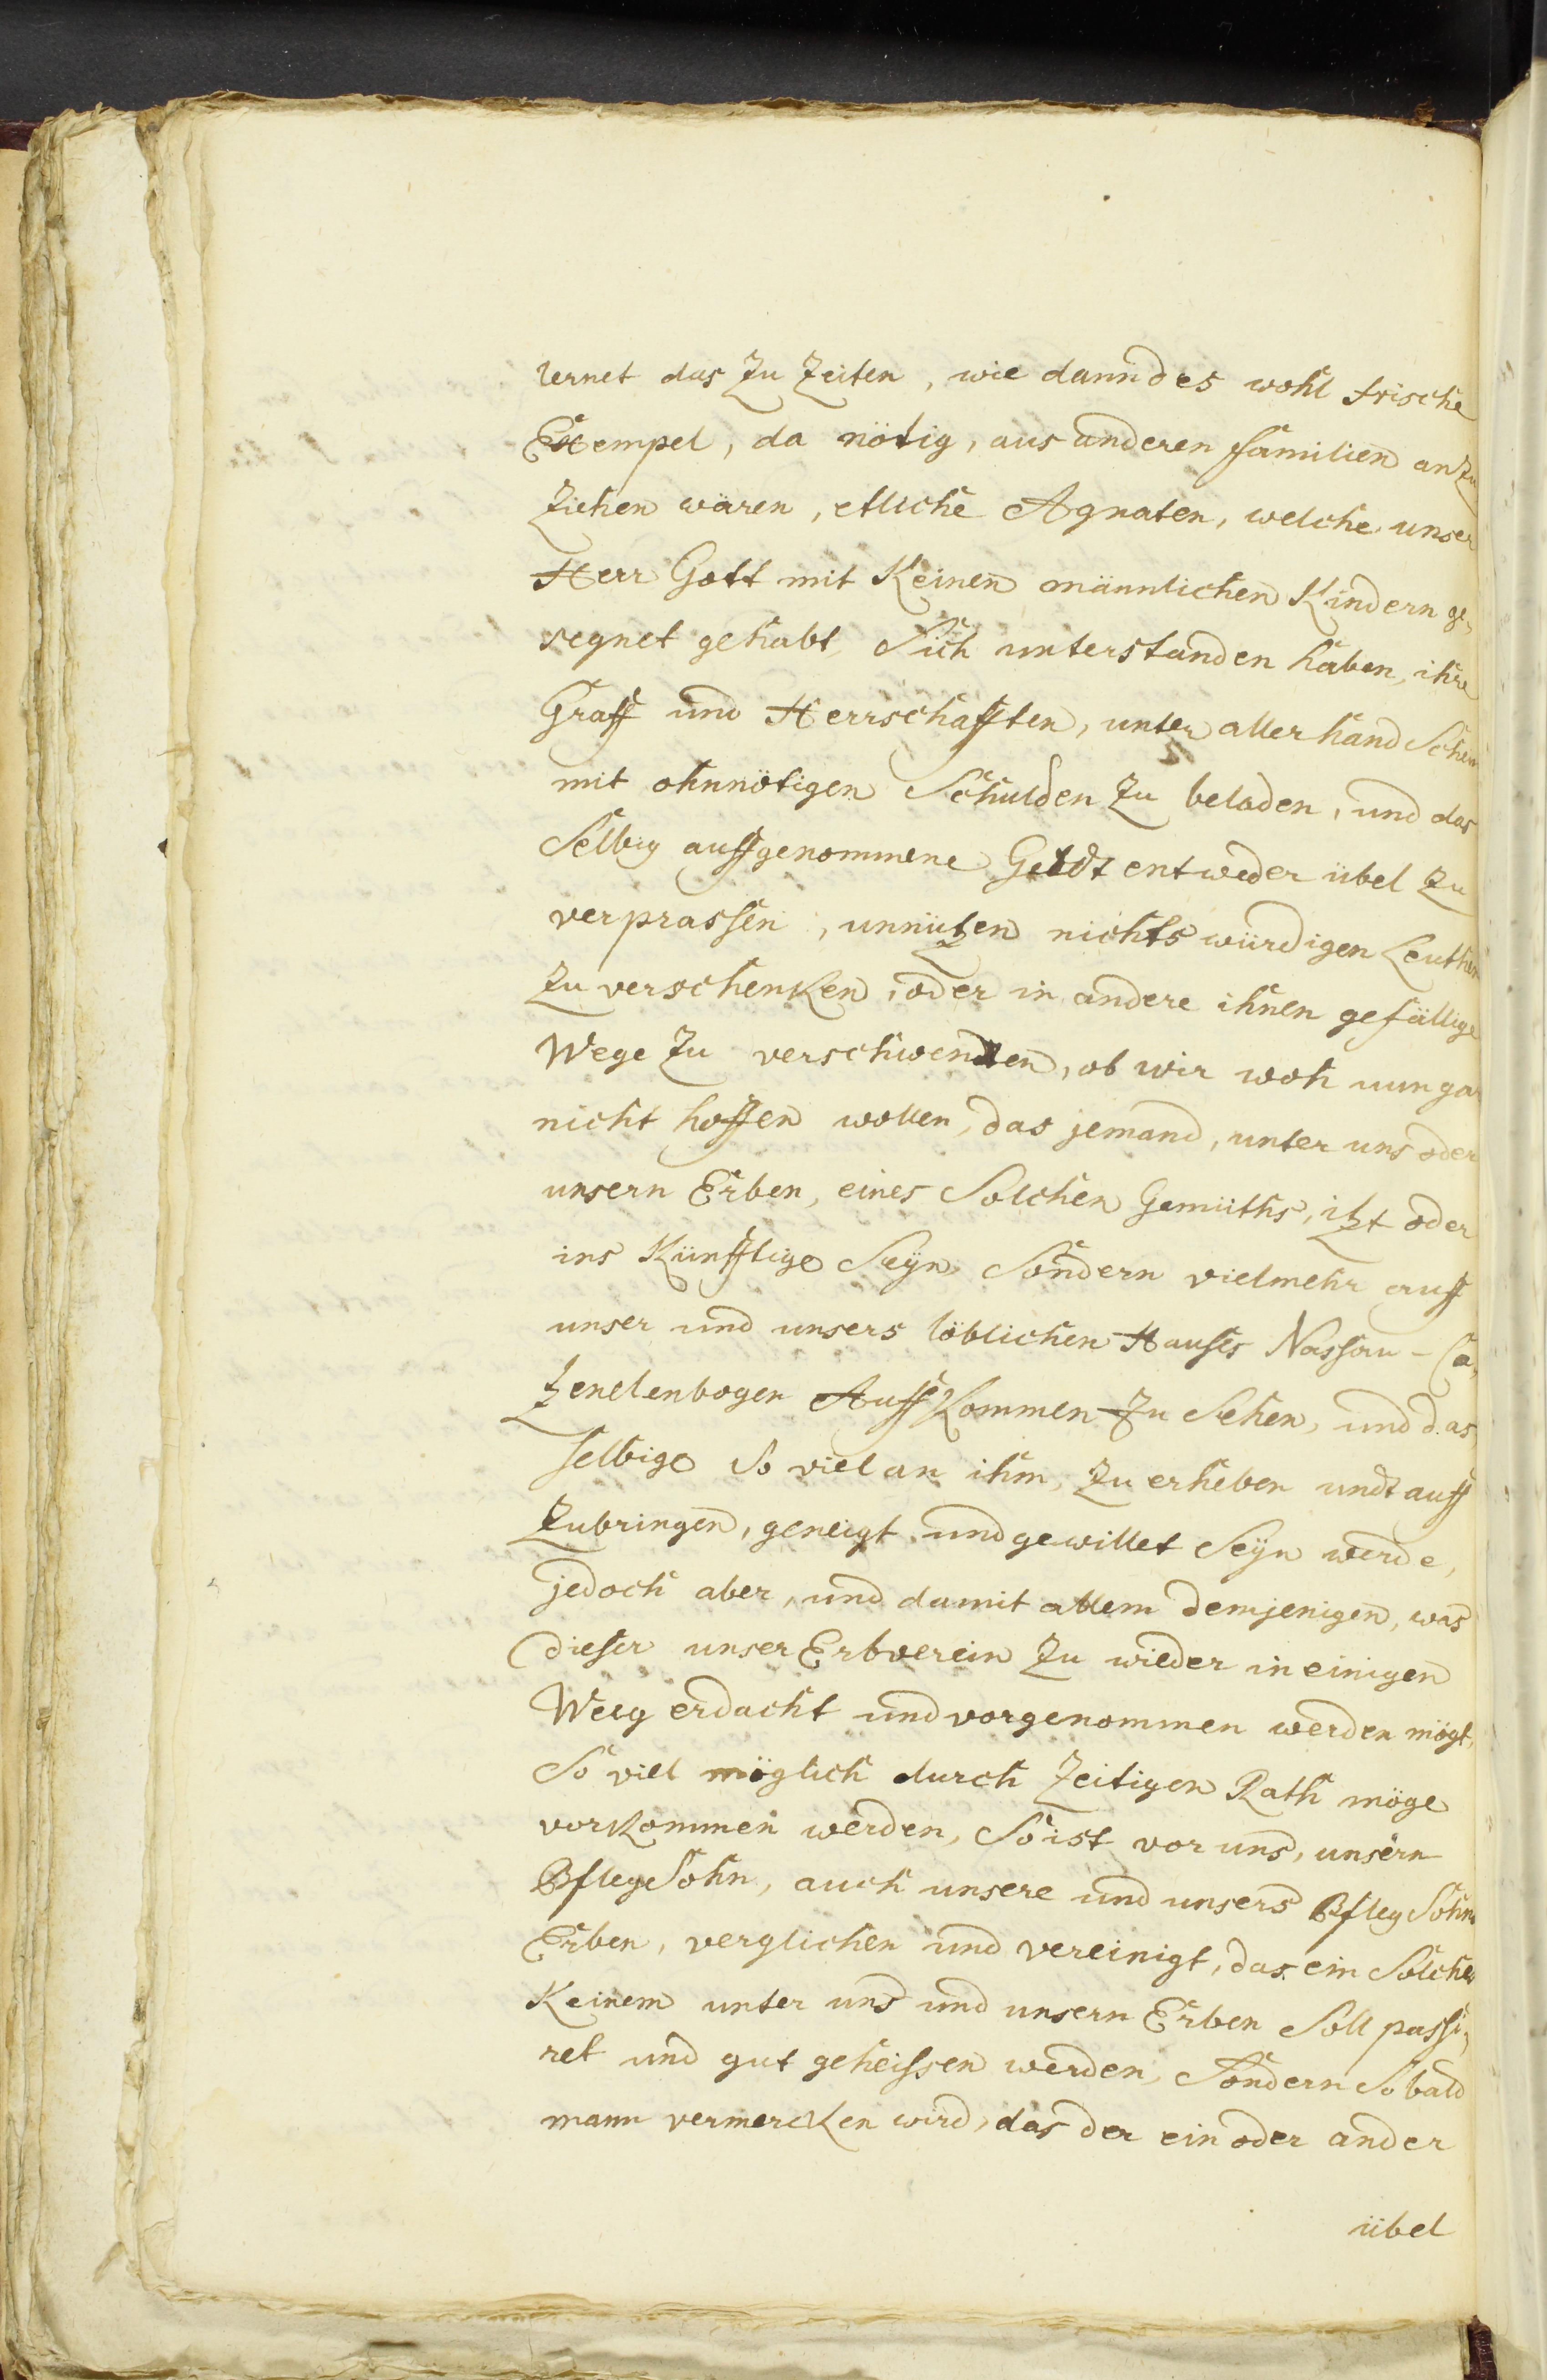 lernet das Zu Zeiten, wie dann des wohl frische
Exempel, da nötig, aus anderen familien an Zu
Ziehen wären, etliche Agnaten, welche unser
Herr Gott mit Keinen männlichen Kindern ge,
segnet gehabt, Sich unterstanden haben, ihre
Graff und Herrschafften, unter allerhand Schein
mit ohnnötigen Schulden Zu beladen, und das
Selbig auffgenommene Geldt entweder übel Zu
verprassen, unnützen nichts würdigen Leuthen
Zu verschenken, oder in andere ihnen gefällige
Wege Zu verschwenden, ob wir woh nun gar
nicht hoffen wollen, das jemand, unter uns oder
unsern Erben, eines Solchen Gemüths, itzt oder
ins Künfftige Seÿn, Sondern vielmehr auff
unser und unsers löblichen Hauses Nassau - Ca,
tzenelenbogen Auff Kommen Zu Sehen, und das,
selbige So viel an ihm, Zu erheben undt auff
Zubringen, geneigt und gewillet Seÿn werde,
jedoch aber, und damit allem demjenigen, was
dieser unser Erbverein Zu wieder in einigen
Weeg erdacht und vorgenommen werden mögt,
So viel möglich durch Zeitigen Rath möge
vorkommen werden, So ist vor uns, unsern
Pfleg Sohn, auch unsere und unsers Pfleg Sohns
Erben, verglichen und vereinigt, das ein Solches
Keinem unter uns und unsern Erben Soll passi,
ret und gut geheissen werden, Sondern So bald
mann vermercken wird, das der ein oder ander
übel